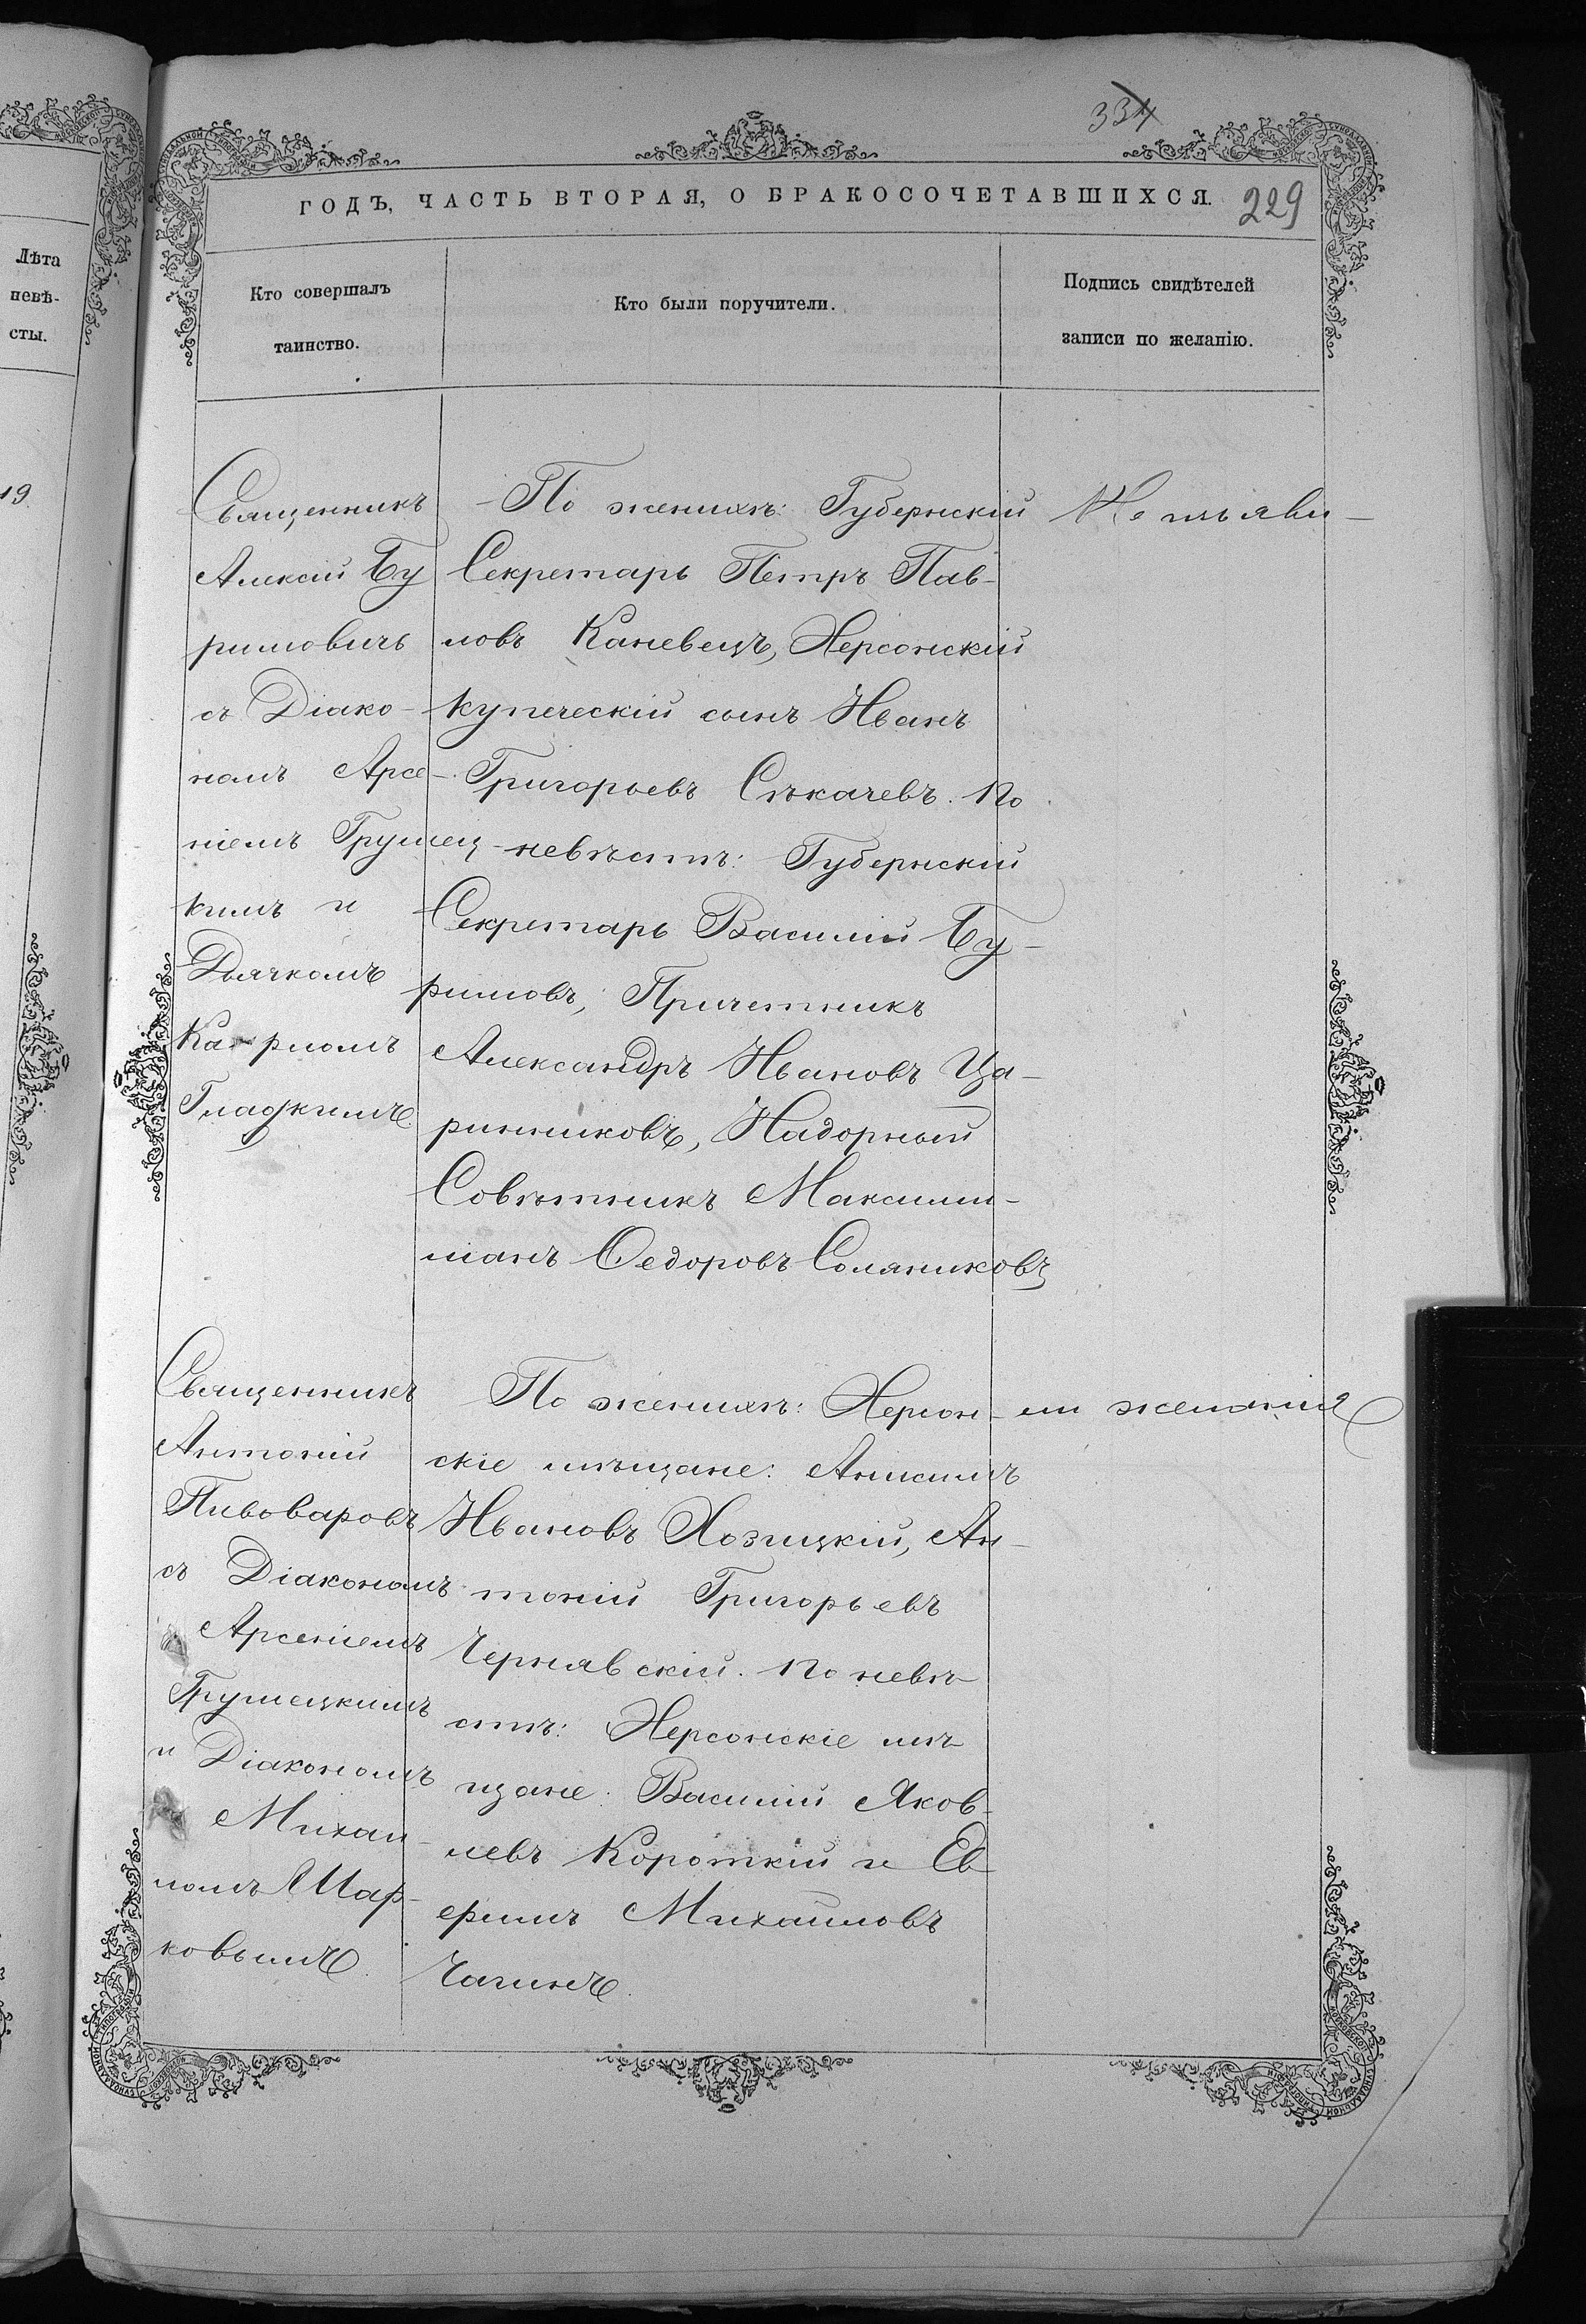 334
ГОДЪ, ЧАСТЬ ВТОРАЯ, О БРАКОСОЧЕТАВШИХСЯ.
229
Лѣта
невѣ-
сты.
19
Кто совершалъ
таинство.
Кто были поручители.
Подпись свидѣтелей
записи по желанію.
Священникъ
Алексій Бу
римовичъ
съ Діако-
номъ Арсе-
ніемъ Грушец-
кимъ и
Дьячкомъ
Карпомъ
Гладкимъ
По женихѣ: Губернскій
Секретарь Петръ Пав-
ловъ Каневецъ, Херсонскій
купеческій сынъ Иванъ
Григорьевъ Сѣкачевъ. По
невѣстѣ: Губернскій
Секретарь Василій Бу-
римовъ, Причетникъ
Александръ Ивановъ Ца-
ринниковъ, Надорный
Совѣтникъ Максими-
ліанъ Ѳедоровъ Соляниковъ
Не изъяви-
Священникъ
Антоній
Пивоваровъ
съ Діакономъ
Арсеніемъ
Грушецкимъ
и Діакономъ
Михаи-
ломъ Мар-
ковымъ
По женихѣ: Херсон-
скіе мѣщане: Анисимъ
Ивановъ Хозицкій, Ан-
тоній Григорьевъ
Чернявскій. По невѣ-
стѣ: Херсонскіе мѣ-
щане: Василій Яков-
левъ Короткій и Ев-
фимъ Михайловъ
Чагинъ
ли желанія